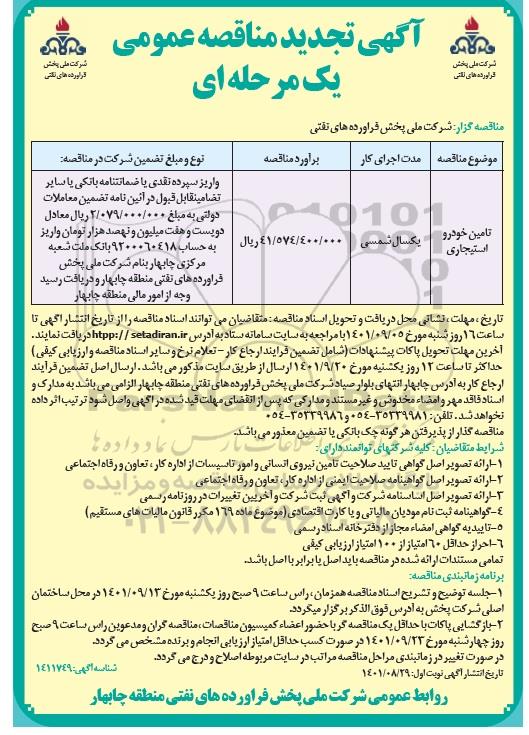 آگهی تجدید مناقصه عمومی
یک مرحله ای
شرکت ملی پخش
فرآورده های نفتی
شرکت ملی پخش
فرآورده های نفتی
مناقصه گزار: شرکت ملی پخش فرآورده های نفتی
موضوع مناقصه
مدت اجرای کار
برآورد مناقصه
نوع و مبلغ تضمین شرکت در مناقصه:
تامین خودرو
استیجاری
یکسال شمسی
۴۱/۵۷۴/۴۰۰/۰۰۰ ریال
واریز سپرده نقدی یا ضمانتنامه بانکی یا سایر
تضامینقابل قبول در آئین نامه تضمین معاملات
دولتی به مبلغ ۲/۰۷۹/۰۰۰/۰۰۰ ریال معادل
دویست و هفت میلیون و نهصد هزار تومان واریز
به حساب ۹۲۰۰۰۶۰۴۱۸ بانک ملت شعبه
مرکزی چابهار بنام شرکت ملی پخش
فرآورده های نفتی منطقه چابهار و دریافت رسید
وجه از امور مالی منطقه چابهار
تاریخ ، مهلت ، نشانی محل دریافت و تحویل اسناد مناقصه : متقاضیان می توانند اسناد مناقصه را از تاریخ انتشار آگهی تا
ساعت ۱۶ روز شنبه مورخ ۱۴۰۱/۰۹/۰۵ با مراجعه به سایت سامانه ستاد به آدرس htpp:// setadiran.ir دریافت نمایند.
آخرین مهلت تحویل پاکات پیشنهادات (شامل تضمین فرآیند ارجاع کار - تعلام نرخ و سایر اسناد مناقصه و ارزیابی کیفی)
حداکثر تا ساعت ۱۲ روز یکشنبه مورخ ۱۴۰۱/۹/۲۰ ارسال از طریق سایت مذکور می باشد. ارسال اصل تضمین فرآیند
ارجاع کار به آدرس چابهار انتهای بلوار صیاد شرکت ملی پخش فرآورده های نفتی منطقه چابهار الزامی می باشد به مدارک و
اسناد فاقد مهر و امضاء مخدوش و غیر مستند و مدارکی که پس از انقضای مهلت قید شده در آگهی واصل شود ترتیب اثر داده
نخواهد شد. تلفن : ۳۵۳۳۹۹۸۱-۰۵۴ و ۳۵۳۳۹۹۸۶-۰۵۴
مناقصه گذار از پذیرفتن هر گونه چک بانکی یا تضمین معذور می باشد.
شرایط متقاضیان : کلیه شرکتهای توانمند دارای :
۱-ارائه تصویر اصل گواهی تایید صلاحیت تامین نیروی انسانی و امور تاسیسات از اداره کار ، تعاون و رفاه اجتماعی
۲-ارائه تصویر اصل گواهینامه صلاحیت ایمنی از اداره کار ، تعاون و رفاه اجتماعی
۳-ارائه تصویر اصل اساسنامه شرکت و آگهی ثبت شرکت و آخرین تغییرات در روزنامه رسمی
۴-گواهینامه ثبت نام مودیان مالیاتی و یا کارت اقتصادی (موضوع ماده ۱۶۹ مکرر قانون مالیات های مستقیم)
۵-تاییدیه گواهی امضاء مجاز از دفترخانه اسناد رسمی
۶-احراز حداقل ۶۰ امتیاز از ۱۰۰ امتیاز ارزیابی کیفی
تمامی مستندات ارائه شده در مناقصه باید اصل یا برابر با اصل باشد.
برنامه زمانبندی مناقصه:
۱-جلسه توضیح و تشریح اسناد مناقصه همزمان ، راس ساعت ۹ صبح روز یکشنبه مورخ ۱۴۰۱/۰۹/۱۳ در محل ساختمان
اصلی شرکت پخش به آدرس فوق الذکر برگزار میگردد.
۲-بازگشایی پاکات با حداقل یک مناقصه گر با حضور اعضاء کمیسیون مناقصات ، مناقصه گران و مدعوین راس ساعت ۹ صبح
روز چهارشنبه مورخ ۱۴۰۱/۰۹/۲۳ در صورت کسب حداقل امتیاز ارزیابی انجام و برنده مشخص می گردد.
در صورت تغییر در زمانبندی مراحل مناقصه مراتب در سایت مربوطه اصلاح و درج می گردد.
تاریخ انتشار آگهی نوبت اول: ۱۴۰۱/۰۸/۲۹
شناسه آگهی: ۱۴۱۱۷۴۹
روابط عمومی شرکت ملی پخش فرآورده های نفتی منطقه چابهار